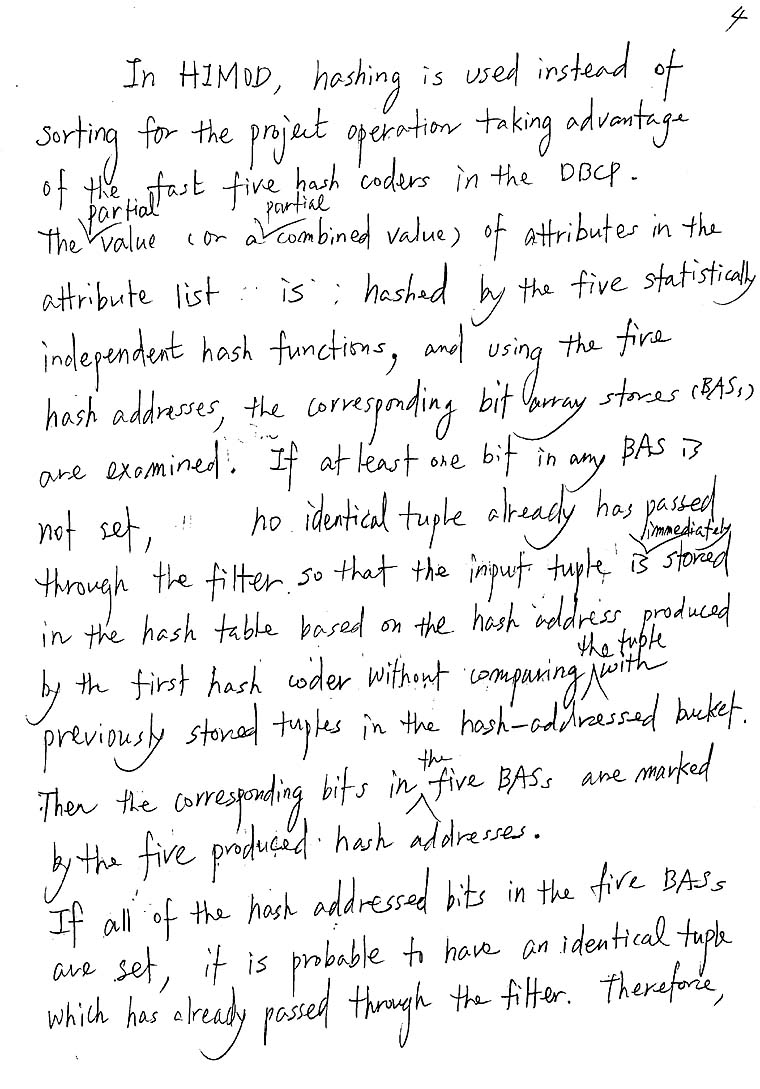 4
In HIMOD, hashing is used instead of
sorting for the project operation taking advantage
of the fast five hash coders in the DBCP.
The partial value (or a partial combined value) of attributes in the
attribute list is hashed by the five statistically
independent hash functions, and using the five
hash addresses, the corresponding bit array stores (BASs)
are examined. If at least one bit in any BAS is
not set, no identical tuple already has passed
through the filter so that the input tuple is immediately stored
in the hash table based on the hash address produced
by th first hash coder without comparing the tuple with
previously stored tuples in the hash-addressed bucket.
Then the corresponding bits in the five BASs are marked
by the five produced hash addresses.
If all of the hash addressed bits in the five BASs
are set, it is probable to have an identical tuple
which has already passed through the filter. Therefore,